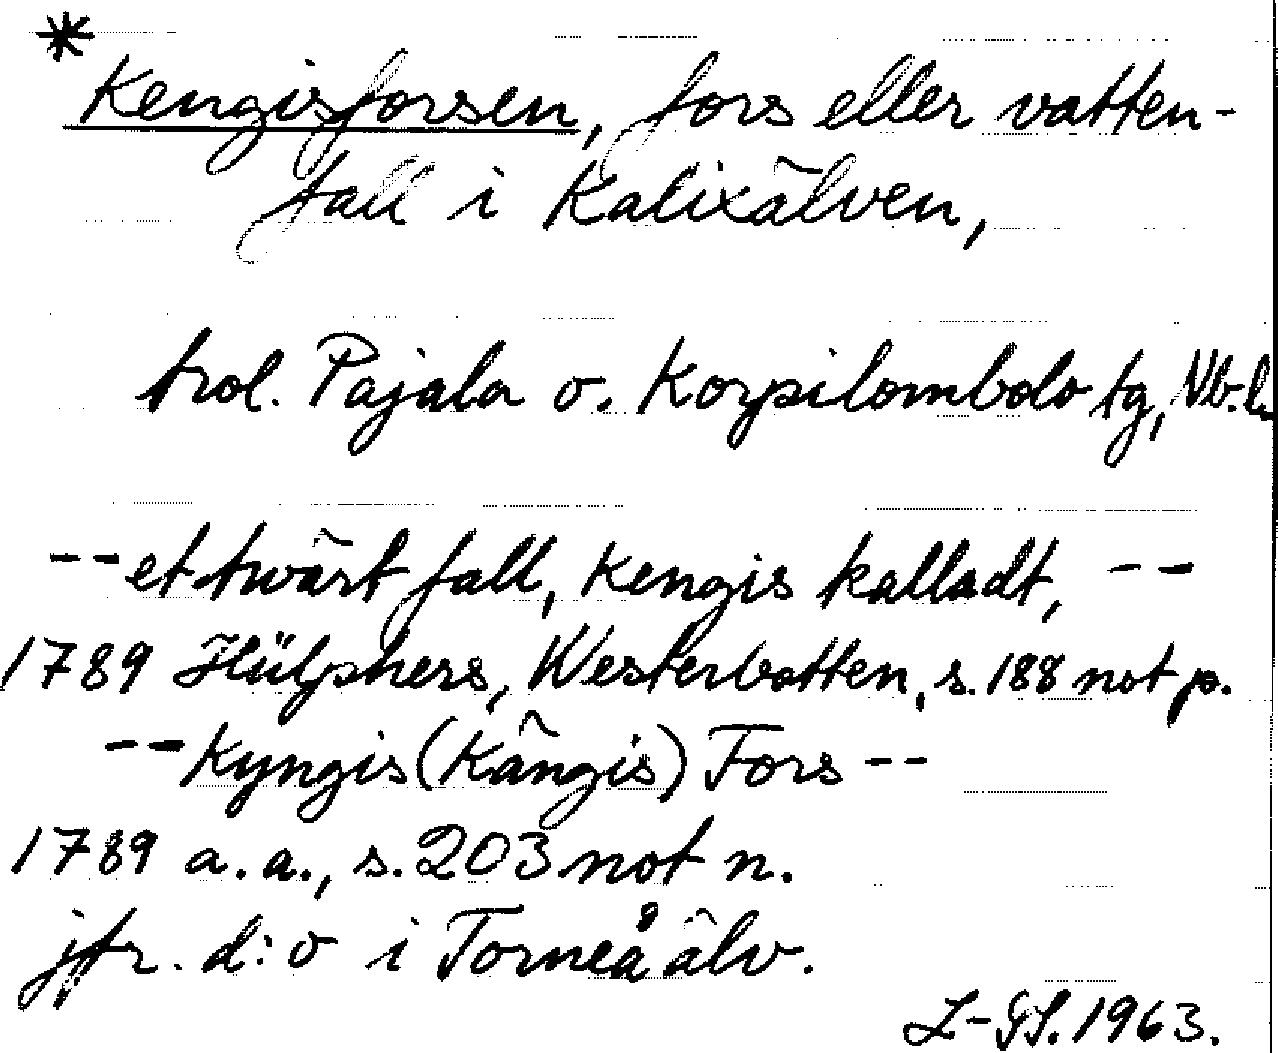 *
Kengisforsen, fors eller vatten-
fall i Kalixälven,
trol. Pajala o. Korpilombolo tg, Vb. l.
-- et twärt fall, Kengis kalladt, --
1789 Hülphers, Westerbotten, s. 188 not p.
-- Kyngis (Kängis) Fors --
1789 a.a., s. 203 not n.
jfr. d:o i Torneå älv.
L-GS. 1963.